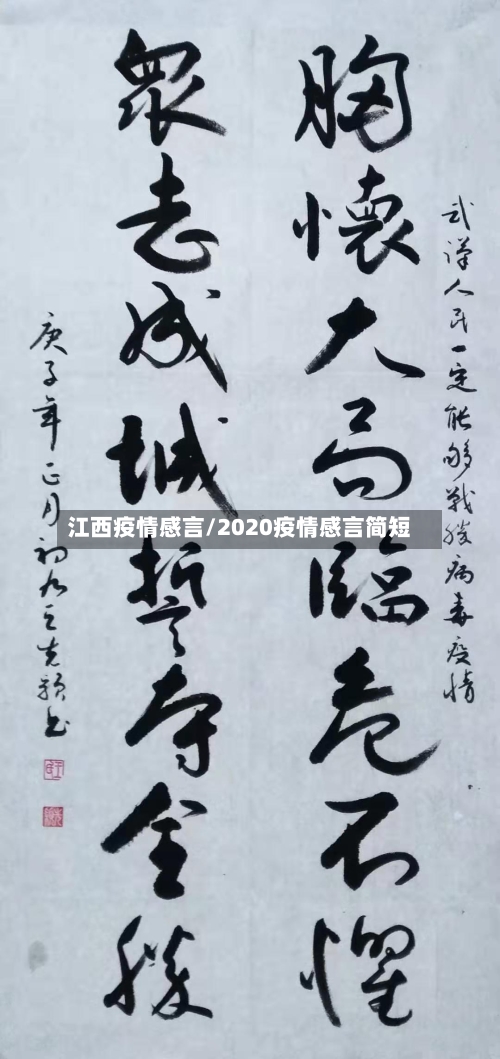 武漢人民一定能够戰勝病毒疫情
胸懷大局臨危不懼
衆志成城誓奪全勝
庚子年正月初九王克书
江西疫情感言/2020疫情感言简短